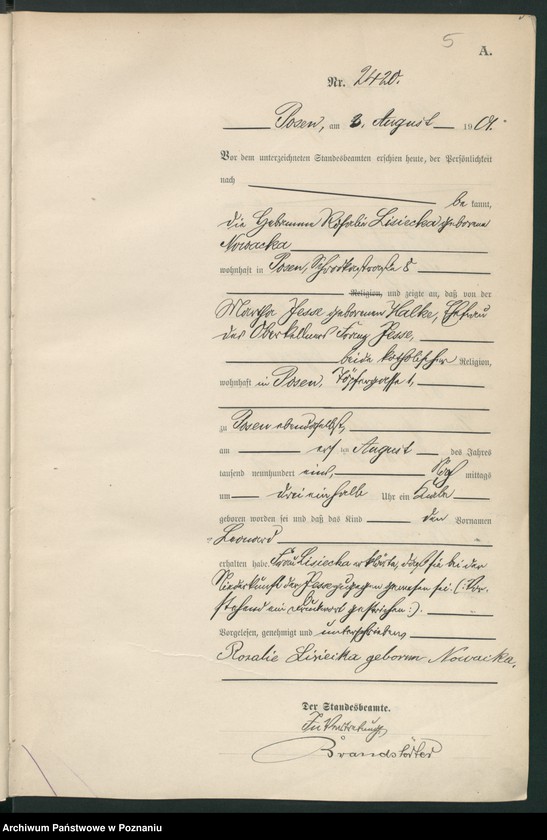 5
A.
Nr. 2420.
Posen, am 3. August 1901.
Vor dem unterzeichneten Standesbeamten erschien heute, der Persönlichkeit
nach
be kannt,
die Hebamme Rosalie Lisiecka geborene
Nowacka
wohnhaft in Posen, Schrodkastraße 8
Religion, und zeigte an, daß von der
Martha Jesse geborenen Halke, Ehefrau
des Oberkellners Franz Jesse,
beide katholischer Religion,
wohnhaft in Posen, Töpfergasse 1,
zu Posen ebendaselbst,
am ersten August des Jahres
tausend neunhundert eins, Nach mittags
um drei einhalb Uhr ein Knabe
geboren worden sei und daß das Kind den Vornamen
Leonard
erhalten habe. Frau Lisiecka erklärte, daß sie bei der
Niederkunft der Jesse zugegen gewesen sei. (: Vor-
stehend ein Druckwort gestrichen :).
Vorgelesen, genehmigt und unterschrieben
Rosalie Lisiecka geborne Nowacka.
Der Standesbeamte.
In Vertretung
Brandstäter
Archiwum Państwowe w Poznaniu